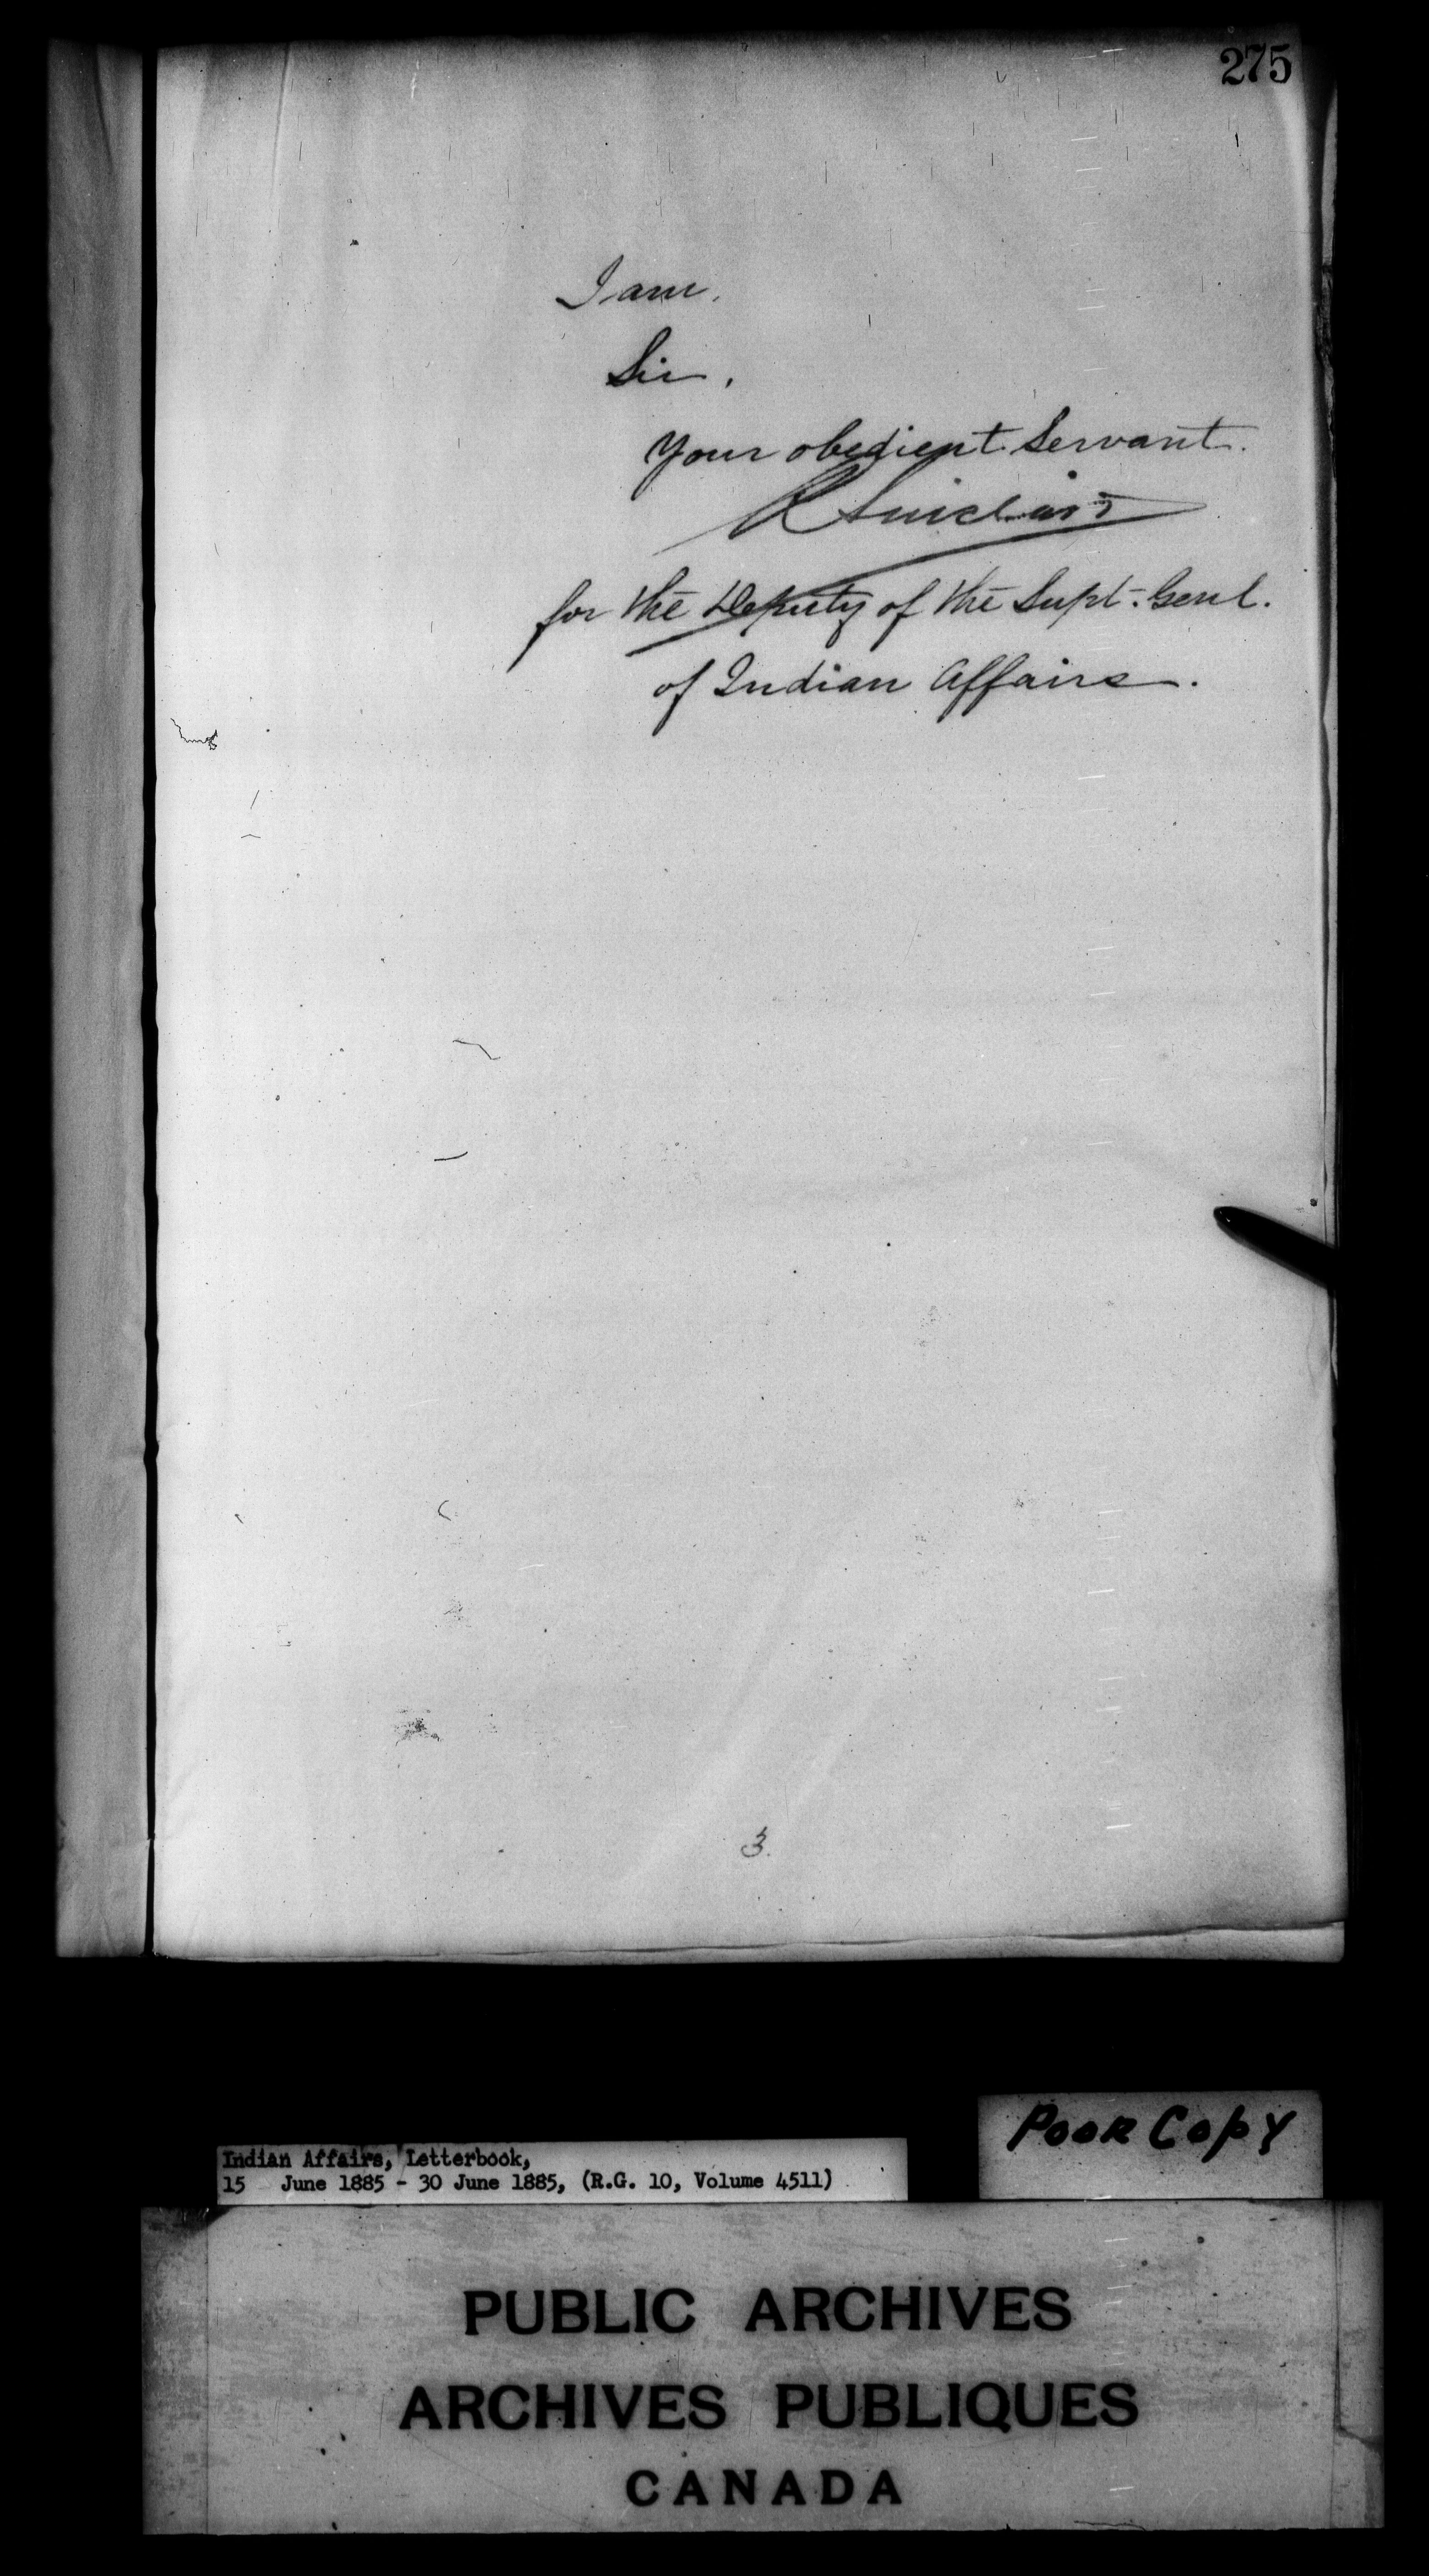 275
I am,
Sir,
Your obedient Servant.
R Sinclair
for the Deputy of the Supt. Genl.
of Indian Affairs.
3.
Poor Copy
Indian Affairs, Letterbook,
15 June 1885 - 30 June 1885, (R.G. 10, Volume 4511)
PUBLIC ARCHIVES
ARCHIVES PUBLIQUES
CANADA